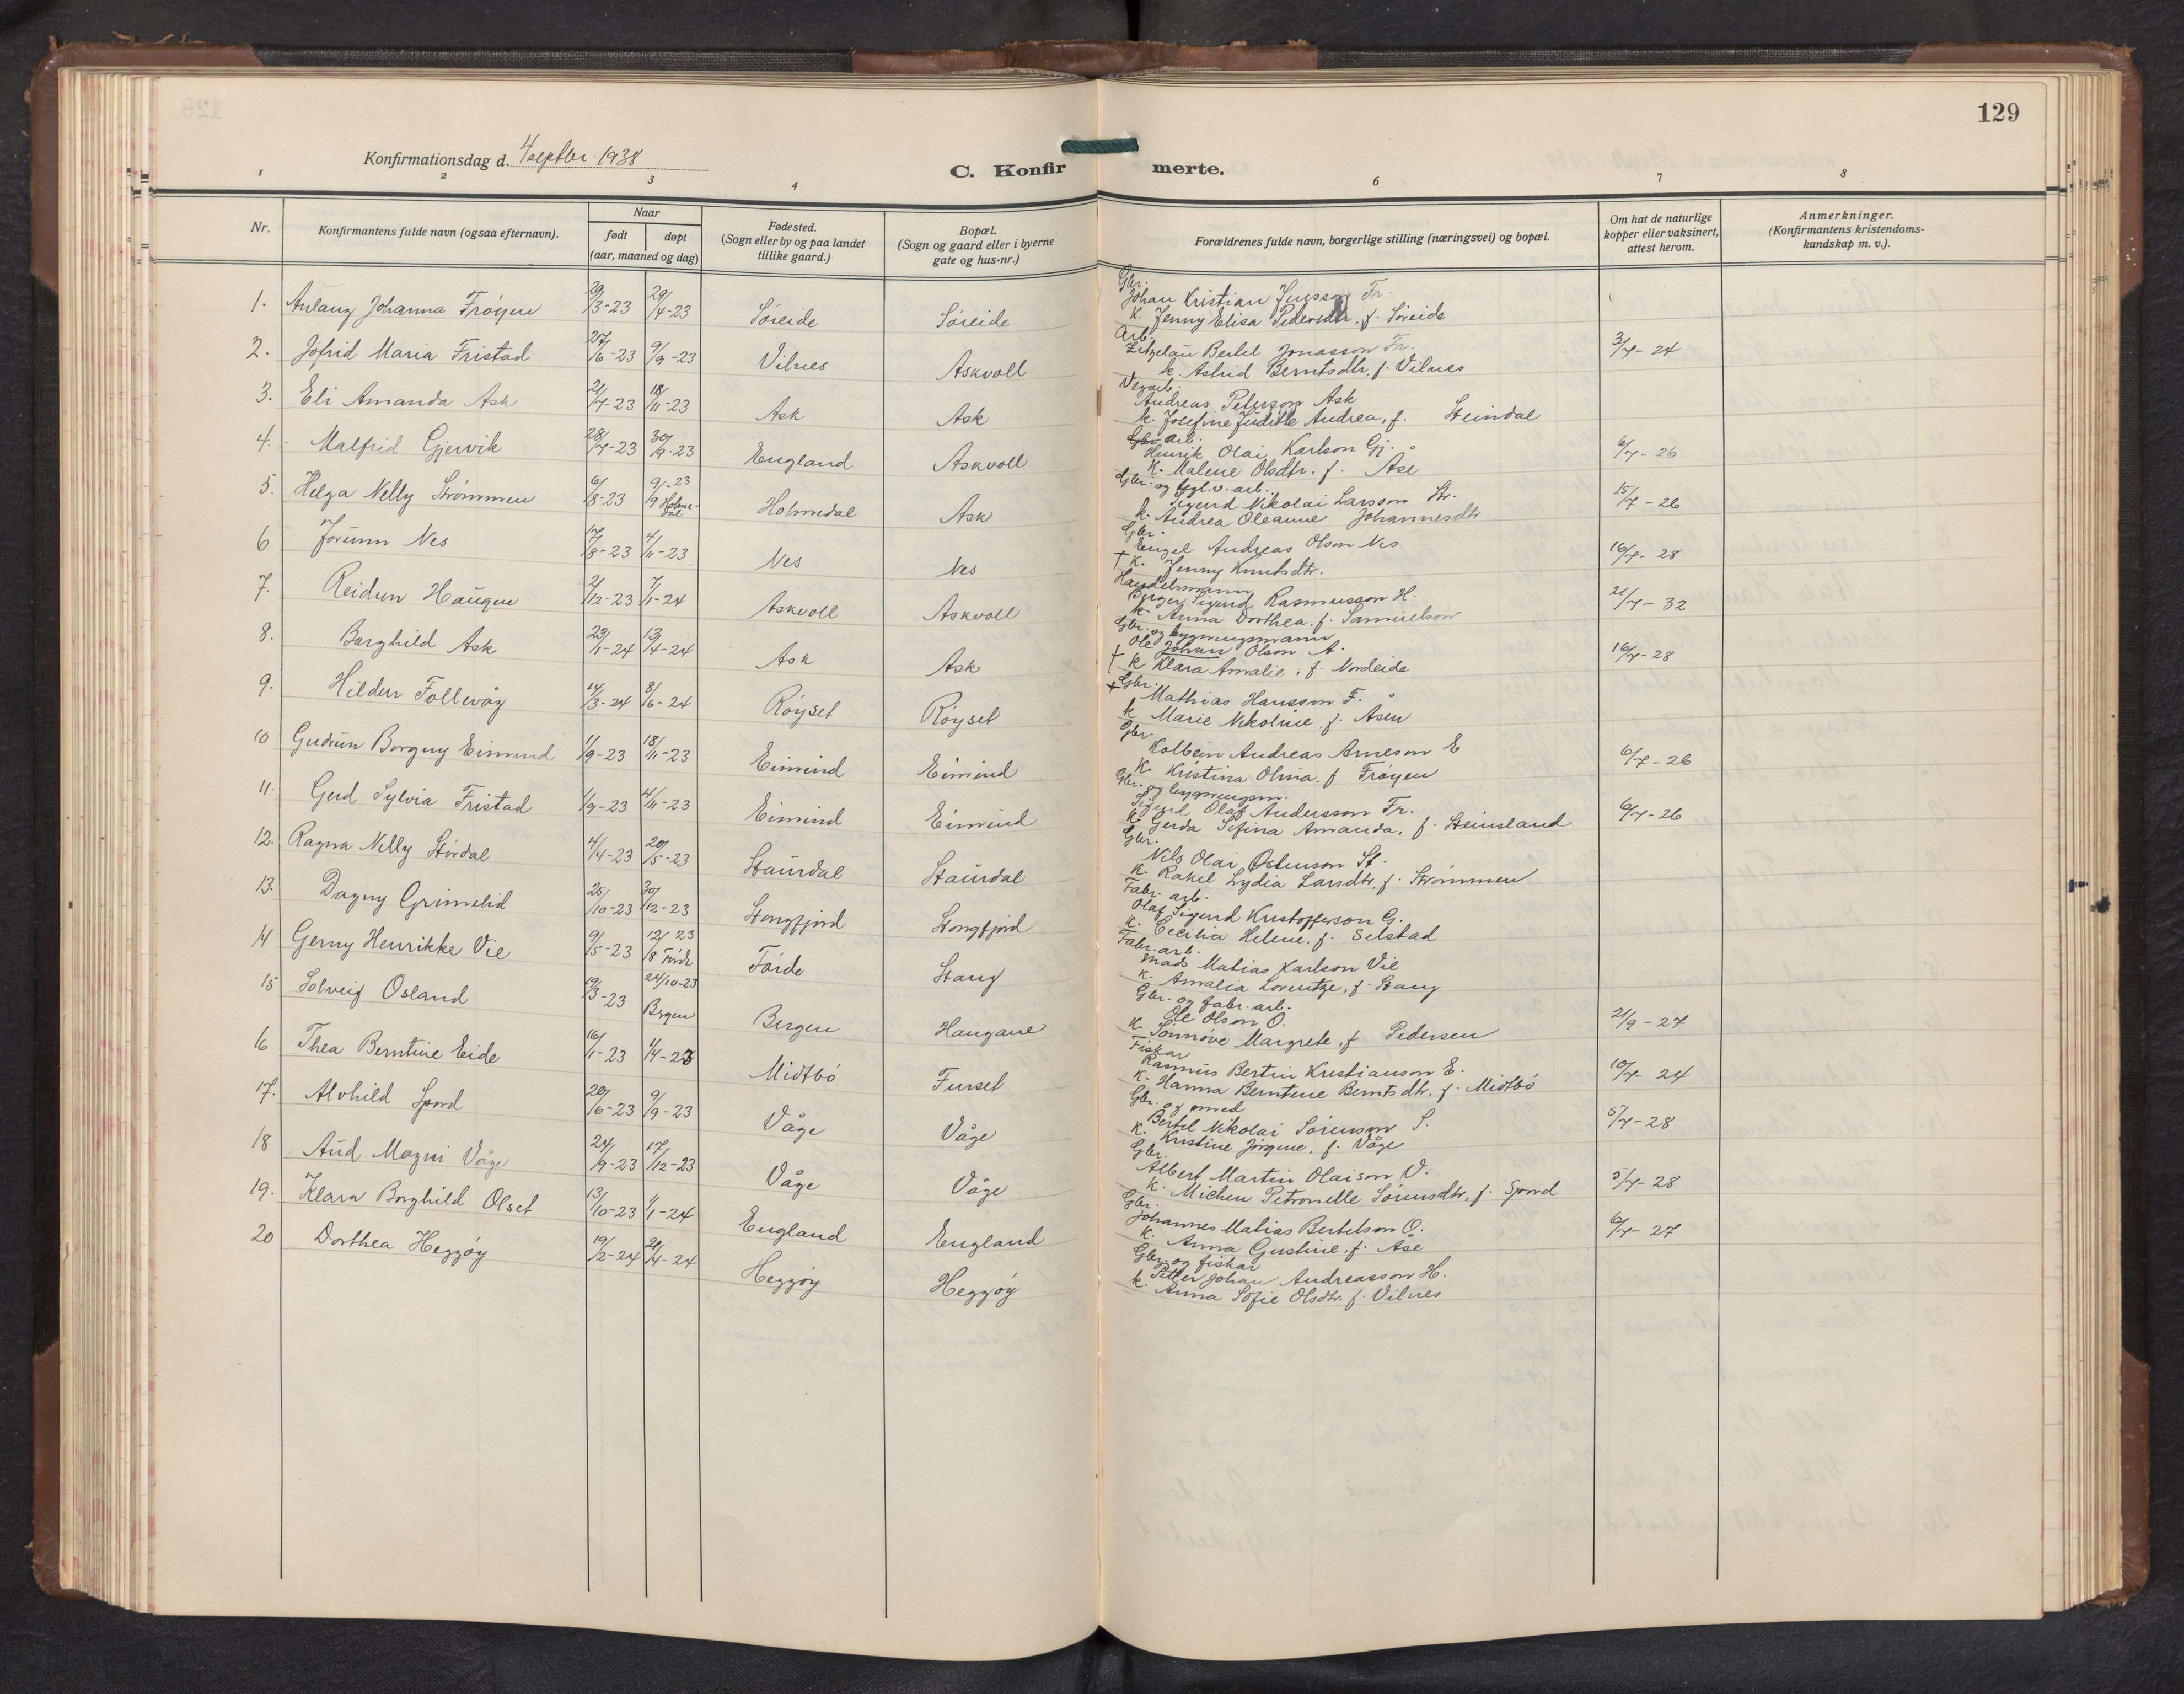 129
Konfirmationsdag d. 4 septbr. 1938
C. Konfirmerte.
1 2 3 4 6 7 8
Nr. Konfirmantens fulde navn (ogsaa efternavn). Naar født døpt (aar, maaned og dag) Fødested. (Sogn eller by og paa landet tillike gaard.) Bopæl. (Sogn og gaard eller i byerne gate og hus-nr.) Forældrenes fulde navn, borgerlige stilling (næringsvei) og bopæl. Om hat de naturlige kopper eller vaksinert, attest herom. Anmerkninger. (Konfirmantens kristendoms-kundskap m. v.).
1. Anlaug Johanna Frøyen 29/3-23 29/4-23 Søreide Søreide
Gbr.
Johan Kristian Jensson Fr.
K. Jenny Elisa Pedersdtr. f. Søreide
2. Jofrid Maria Fristad 27/6-23 9/9-23 Vilnes Askvoll 3/7-24
Arb.
Bertel Jonasson Fr.
k. Astrid Berntsdtr, f. Vilnes
3. Eli Amanda Ask 21/7-23 18/11-23 Ask Ask
Vegarb.
Andreas Peterson Ask
k. Josefine Judithe Andrea, f. Steindal
4. Malfrid Gjervik 28/7-23 30/9-23 England Askvoll 6/7-26
Gbr. arb.
Henrik Olai Karlson Gj.
K. Malene Olsdtr. f. Åse
5. Helga Nelly Strømmen 6/8-23 9/9-23 Holmedal Holmedal Ask 15/7-26
Gbr. og tegl.v. arb.
Sigurd Nikolai Larsson Str.
k. Andrea Oleanne Johannesdtr
6 Jorunn Nes 17/8-23 4/11-23 Nes Nes 16/7-28
Gbr.
Engel Andreas Olson Nes
+ K. Jenny Knutsdtr.
7. Reidun Haugen 2/12-23 7/1-24 Askvoll Askvoll 21/7-32
Handelsmann
Birger Sigurd Rasmusson H.
k. Anna Dorthea. f. Samuelson
8. Borghild Ask 29/1-24 13/4-24 Ask Ask 16/7-28
Gbr. og bygningsmann
Ole Johan Olson A.
+ k Klara Amalie, f. Nordeide
9. Hildur Follevåg 14/3-24 8/6-24 Røyset Røyset
+ Gbr.
Mathias Hansson F.
k Marie Nikoline, f. Åsen
10 Gudrun Borgny Eimind 1/9-23 18/11-23 Eimind Eimind 6/7-26
Gbr
Kolbein Andreas Arneson E
K. Kristina Olina. f Frøyen
11. Gerd Sylvia Fristad 1/9-23 4/11-23 Eimind Eimind 6/7-26
Gbr. og bygningsm.
Sigurd Olaf Andersson Fr.
K. Gerda Sofina Amanda, f. Steinsland
12. Ragna Nelly Stordal 4/4-23 20/5-23 Staurdal Staurdal
Gbr.
Nils Olai Østenson St.
K. Rakel Lydia Larsdtr, f. Strømmen
13. Dagny Grimelid 25/10-23 30/12-23 Stongfjord Stongfjord
Fabr. arb.
Olaf Sigurd Kristofferson G.
k. Cecilia Helene, f. Selstad
14 Gerny Henrikke Vie 9/5-23 12/8 23 Førde Førde Stang
Fabr. arb.
Mads Matias Karlson Vie
K. Amalia Lorentze, f. Stang
15 Solveig Osland 19/3-23 24/10-23 Bergen Bergen Haugane 21/9-27
Gbr. og fabr. arb.
Ole Olson O.
K. Sønnøve Margrete, f Pedersen
16 Thea Berntine Eide 16/1-23 1/4-23 Midtbø Furset 10/7-24
Fiskar
Rasmus Bertin Kristianson E.
K. Hanna Berntine Berntsdtr. f. Midtbø
17. Alvhild Spord 20/6-23 9/9-23 Våge Våge 5/7-28
Gbr. og smed
Bertel Nikolai Sørenson S.
K. Kristine Jørgine, f. Våge
18 Aud Magni Våge 24/9-23 17/12-23 Våge Våge 5/7-28
Gbr.
Albert Martin Olaison V.
K. Michen Petronelle Sørensdtr, f. Spord
19. Klara Borghild Olset 13/10-23 1/1-24 England England 6/7-27
Gbr.
Johannes Matias Bertelson O.
K. Anna Gustine, f. Åse
20 Dorthea Heggøy 19/2-24 21/4-24 Heggøy Heggøy
Gbr. og fiskar
Petter Johan Andreasson H.
k. Anna Sofie Olsdtr. f. Vilnes